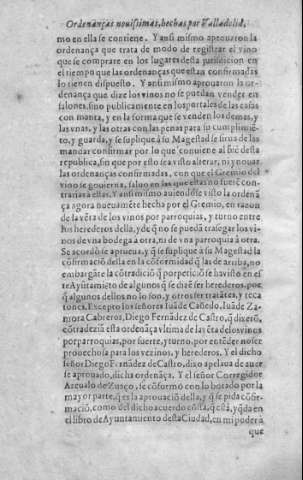 Ordenanças nouissimas, hechas por Valladolid,
mo en ella se contiene. Y ansi mismo aprouaron la
ordenança que trata de modo de registrar el vino
que se comprare en los lugares desta jurisdicion en
el tiempo que las ordenanças que estan confirmadas
lo tienen dispuesto. Y ansi mismo aprouaron la or-
denança que dize los vinos no se puedan vender en
salones, sino publicamente en los portales de las casas
con manta, y en la forma que se venden los demas, y
las vnas, y las otras con las penas para su cumplimiē-
to, y guarda, y se suplique à su Magestad se sirua de las
mandar confirmar por lo que conuiene al bie desta
republica, sin que por esto sea visto alterar, ni ynouar
las ordenanças confirmadas, con que el Gremio del
vino se gouierna, saluo en las que estas no fuere con-
trarias à estas. Y ansi mismo auiendose visto la ordenā
ça agora nueuamēte hecha por el Gremio, en razon
de la vēta de los vinos por parroquias, y turno entre
los herederos della, y de q̄ no se pueda trasegar los vi-
nos de vna bodega à otra, ni de vna parroquia à otra.
Se acordò se aprueua, y q̄ se suplique à su Magestad la
cōfirmaciō della en la cōformidad q̄ las de arriba, no
embargāte la cōtradiciō q̄ por peticiō se ha visto en es
te Ayūtamiēto de algunos q̄ se dizē ser herederos, por
q̄ algunos dellos no lo son, y otros ser tratātes, y reca
tones. Excepto los señores Iuā de Cañedo, Iuā de Za-
mora Cabreros, Diego Fernādez de Castro, q̄ dixerō,
cōtradezia esta ordenāça vltima de las vēta de los vinos
por parroquias, por suerte, y turno, por entēder no ser
prouechosa para los vezinos, y herederos. Y el dicho
señor Diego Fernādez de Castro, dixo apelaua de auer
se aprouado, dicha ordenāça. Y el señor Corregidor
Areualo de Zuaço, se cōformò con lo botado por la
mayor parte, q̄ es la aprouaciō della, y q̄ se pida cōfir-
maciō, como del dicho acuerdo cōsta, q̄ està, y q̄da en
el libro de Ayuntamiento desta Ciudad, en mi poder à
que